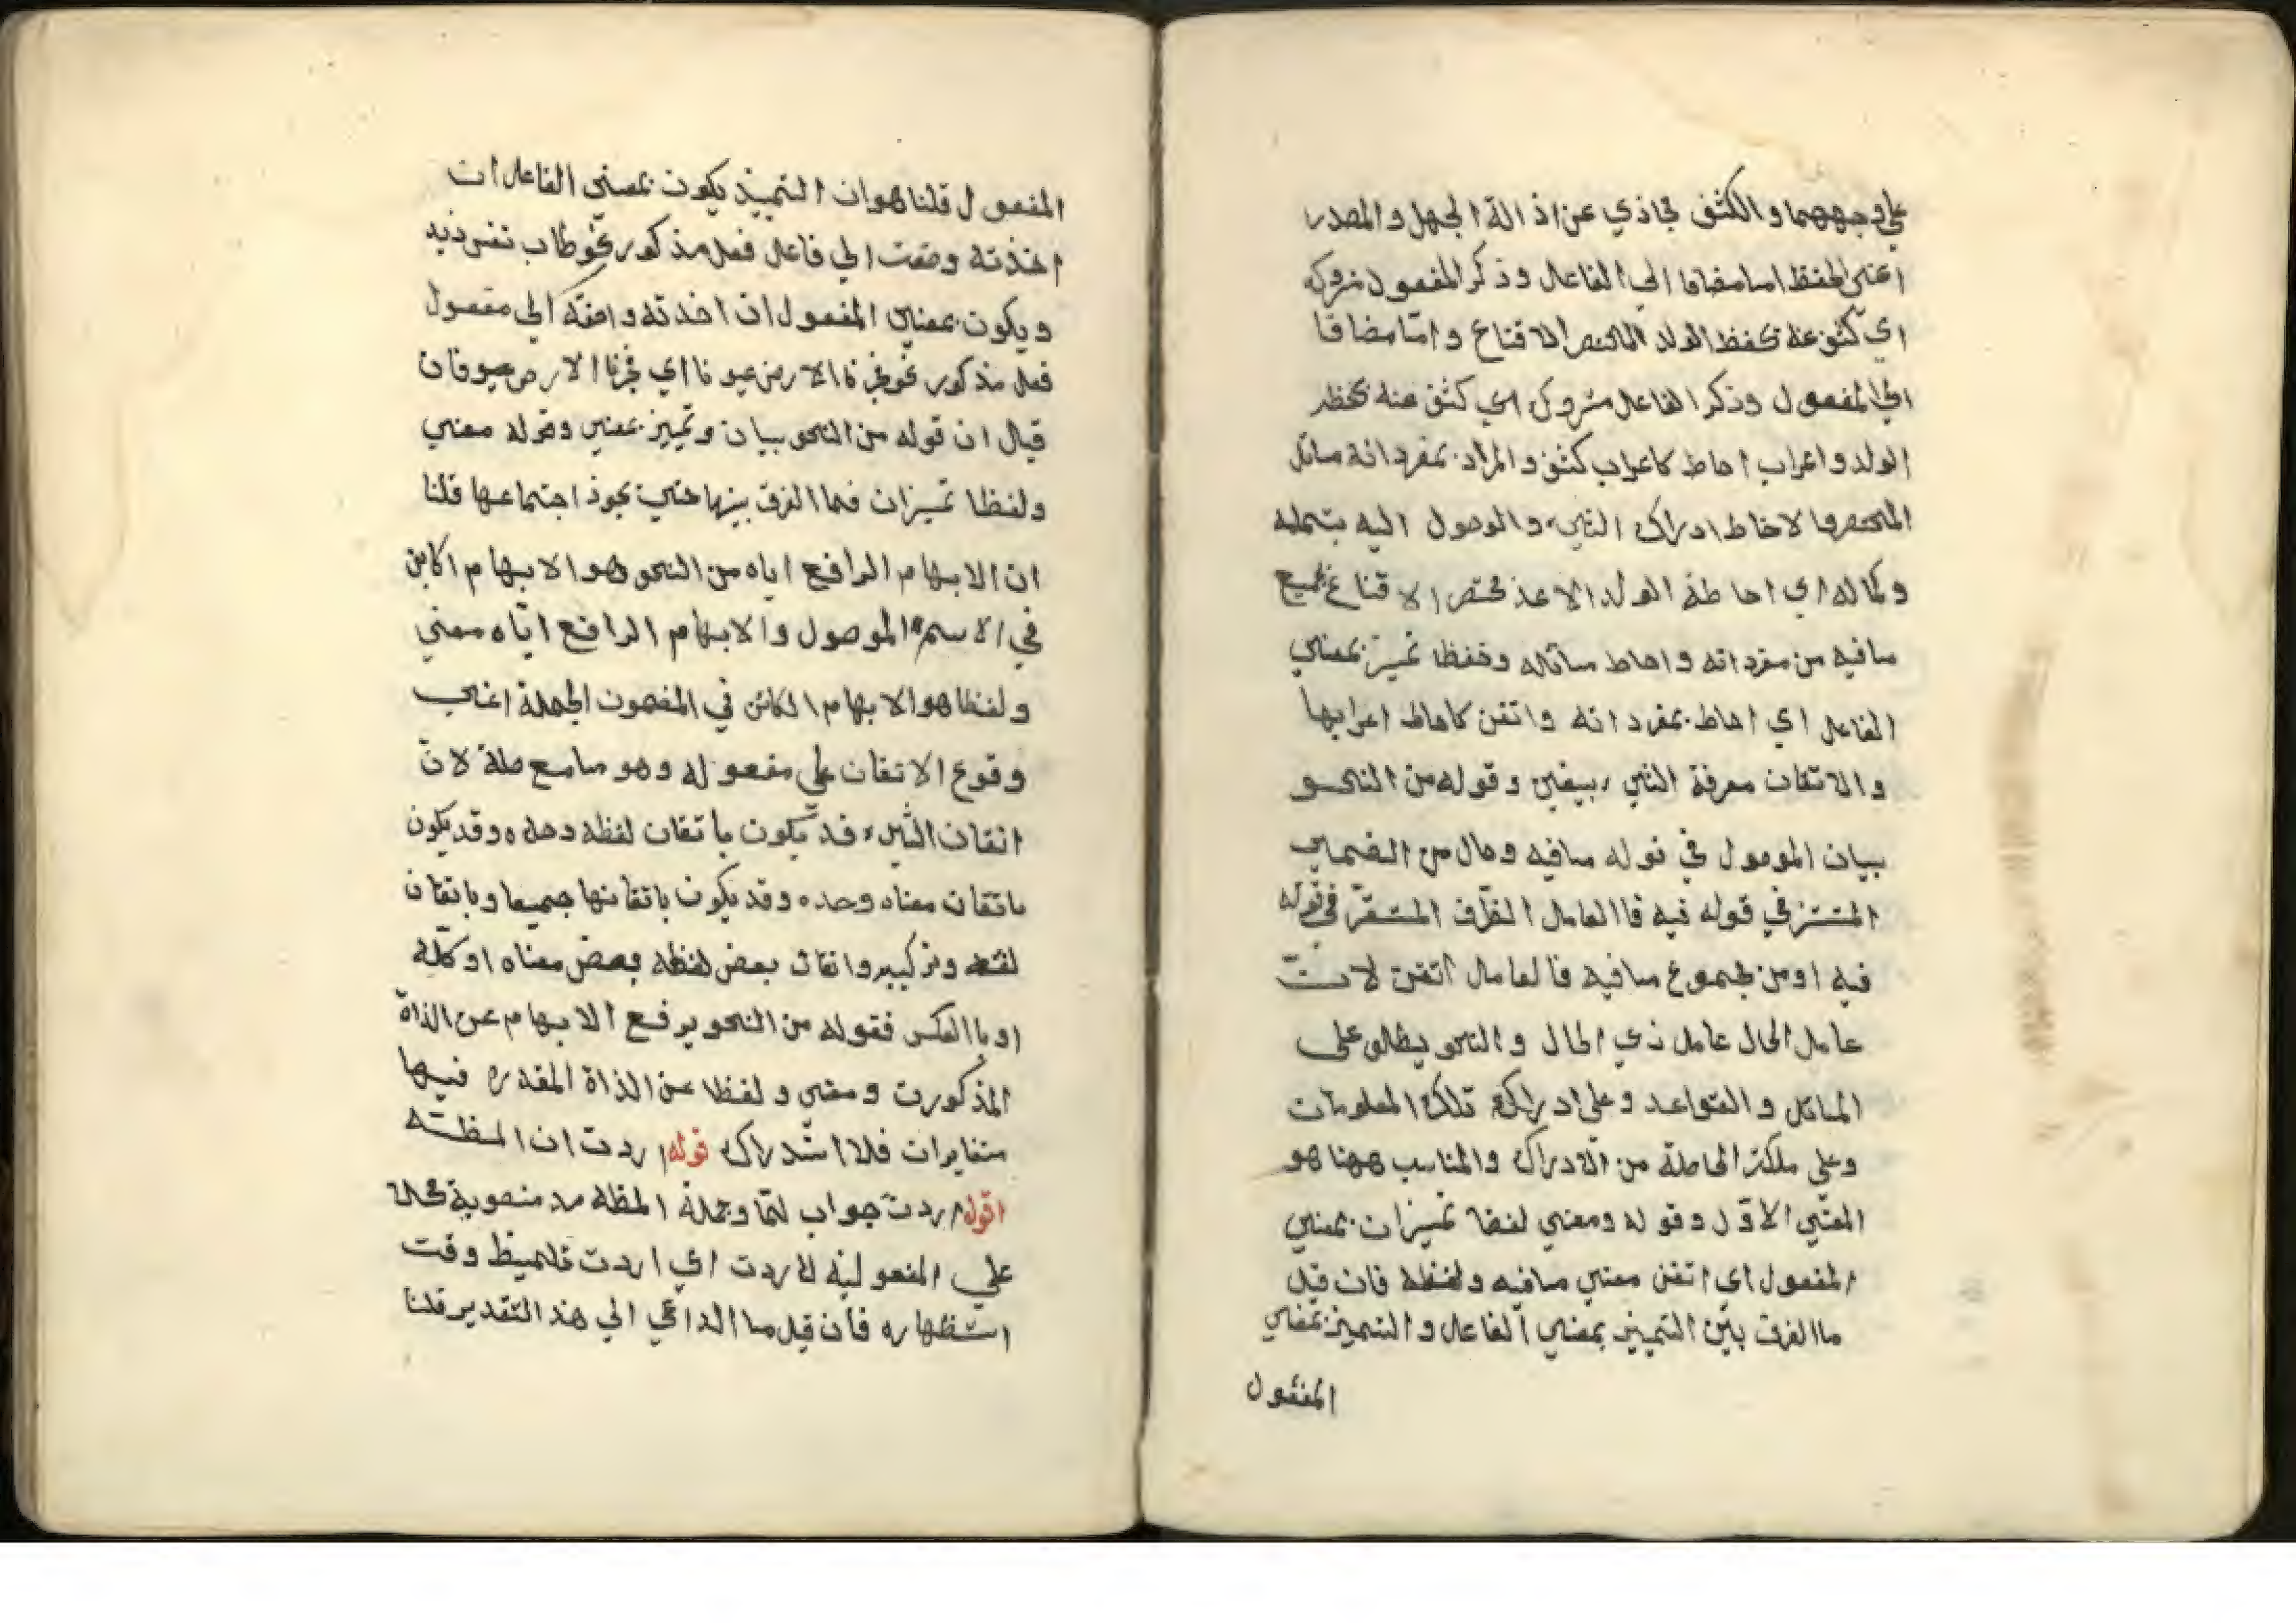 علي وجههما و الكشف مجاذي عن اذ الة الجهل و المصدر
اعني الحفظ اما مضافا الي الفاعل و ذكر المفعول متروكه
اي كشف عنه بحفظ الولد المختصر الاقناع و امّا مضافا
الي المفعول و ذكر الفاعل متروك اي كشف عنه بحفظ
الولد و اعراب احاط كاعراب كشف و المراد بمفرداته مسائل
المختصر و الاحاط ادراك الشيء و الوصول اليه بتمامه
و كماله اي احاطة الولد الاعذ مختصر الاقناع بجميع
ما فيه من مفرداته و احاط مسائله و حفظا تميز بمعني
الفاعل اي احاط بمفرداته و اتقن كاحاط اعرابها
و الاتقان معرفة الشيء بيقين و قوله من النحو
بيان الموصول في قوله ما فيه و حال من الضمير
المستتر في قوله فيه فا العامل الظرف المستقرّ في قوله
فيه او من مجموع ما فيه فا لعامل اتقن لانّ
عامل الحال عامل ذي الحال و النحو يطلق على
المسائل و القواعد و على ادراك تلك المعلومات
و على ملكة الحاصلة من الادراك و المناسب ههنا هو
المعني الاوّل و قوله و معني لفظا تميزان بمعني
المفعول اي اتقن معني ما فيه و لفظه فان قيل
ما الفرق بين التميز بمعني الفاعل و التميز بمعني
المفعول
المفعول قلنا هو ان التميز يكون بمعني الفاعل ان
اخذته وضعت الي فاعل فعل مذكور نحو طاب نفس زيد
و يكون بمعني المفعول ان اخذته و اضفته الي مفعول
فعل مذكور نحو فجرنا الارض عيونا اي فجرنا الارض عيو فان
قيل ان قوله من النحو بيان و تميز بمعني و قوله معني
و لفظا تميزان فما الفرق بينهما حتي يجوز اجتماعها قلنا
ان الابهام الرافع اياه من النحو هو الابهام اكاين
في الاسم الموصول و الابهام الرافع ايّاه معني
و لفظا هو الابهام الكائن في المضمون الجملة اعني
وقوع الاتقان علي مفعوله و هو ما مع صلة لانّ
اتقان الشيء قد يكون باتقان لفظه وحده و قد يكون
باتقان معناه وحده و قد يكون باتقانها جميعا و باتقان
لفظه و تركيبه و اتقان بعض لفظه و بعض معناه او كلّه
او با العكس فقوله من النحو يرفع الابهام عن الذاة
المذكورت و معني و لفظا عن الذاة المقدره فيها
متغايران فلا استدراك قوله اردت ان المظته
اقول اردت جواب لمّا و جملة المظه مد منصوبة محلا
علي المفعولية لاردت اي اردت تلميظ وقت
استظهاره فان قيل ما الداعي الي هذ التقدير قلنا